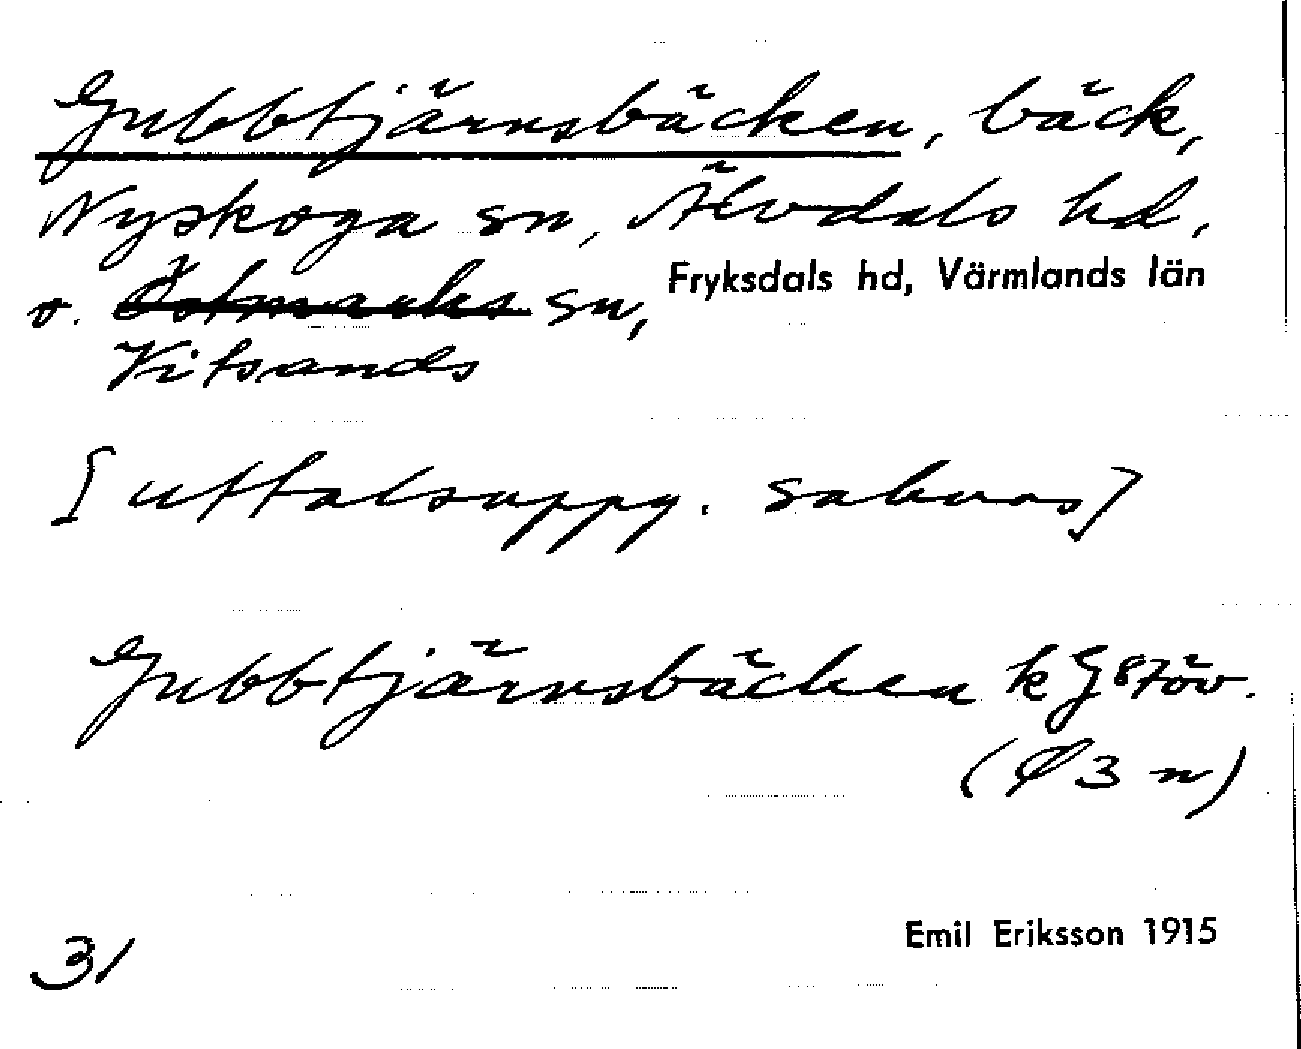 Gubbtjärnsbäcken, bäck,
Nyskoga sn, Älvdals hd,
o. Östmarks sn, Fryksdals hd, Värmlands län
Vitsands
[uttalsuppg. saknas]
Gubbtjärnsbäcken k G87öv.
3 n)
31
Emil Eriksson 1915